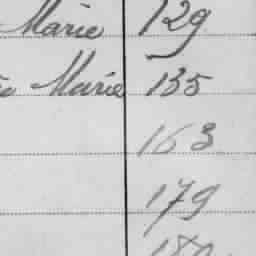 Marie 129
Marie 135
163
179